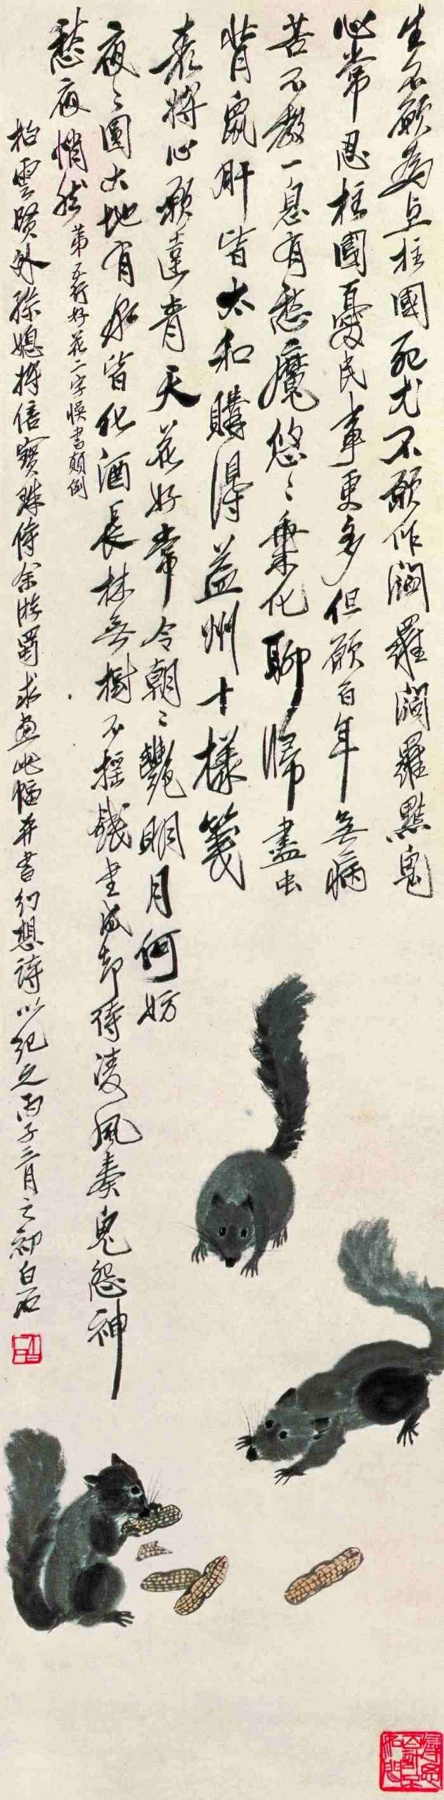 生不願為上柱國死尤不願作閻羅閻羅點鬼
心常忍柱國憂民事更多但願百年無病
苦不教一息有愁魔悠々乘化聊歸盡虫
臂鼠肝皆太和購得益州十樣箋
表將心願達青天花好常令朝々艷明月何妨
夜々圓大地有水皆化酒長林無樹不搖錢書成却待凌風奏鬼怨神
愁夜悄然
第五行好花二字誤書顛倒
柏雲賢外孫媳將倍寶珠侍余游蜀求畫此幅并書幻想詩以紀之丙子三月之初白石